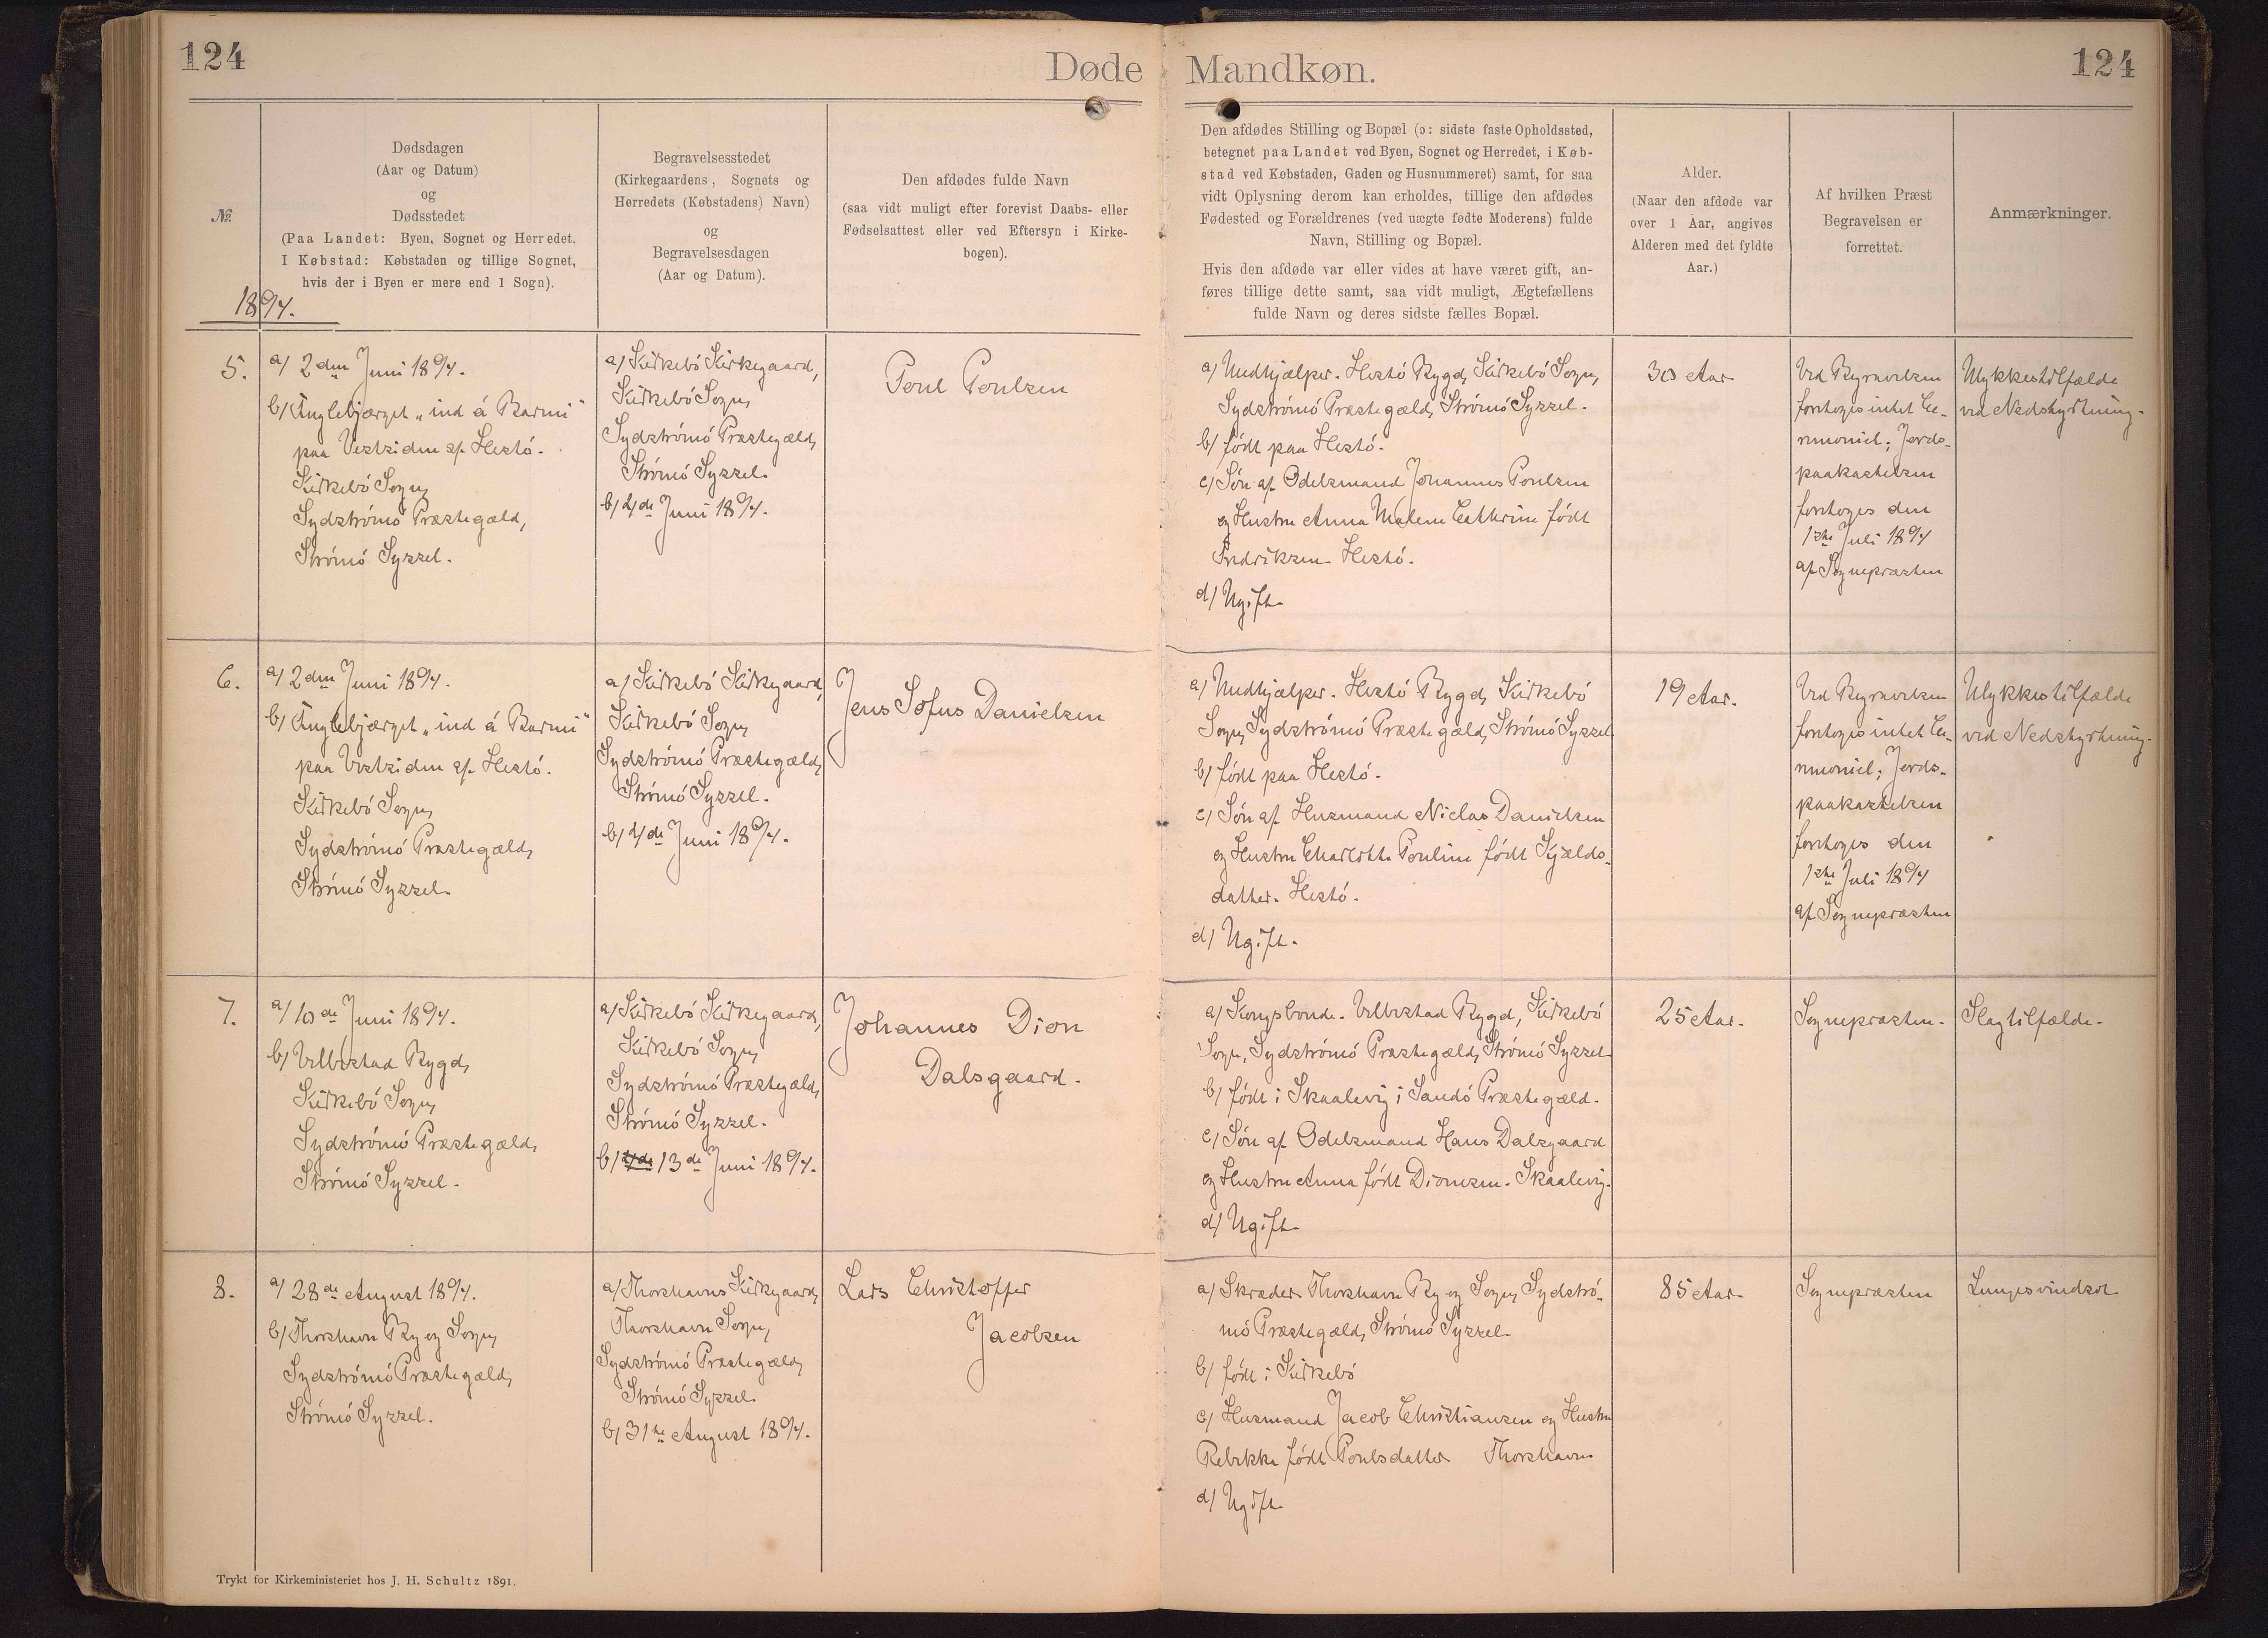 124
Døde
Mandkøn.
124
№
Dødsdagen
(Aar og Datum)
og
Dødsstedet
(Paa Landet: Byen, Sognet og Herredet.
I Købstad: Købstaden og tillige Sognet,
hvis der i Byen er mere end 1 Sogn).
Begravelsesstedet
(Kirkegaardens, Sognets og
Herredets (Købstadens) Navn)
og
Begravelsesdagen
(Aar og Datum).
Den afdødes fulde Navn
(saa vidt muligt efter forevist Daabs- eller
Fødselsattest eller ved Eftersyn i Kirke-
bogen).
Den afdødes Stilling og Bopæl (ɔ: sidste faste Opholdssted,
betegnet paa Landet ved Byen, Sognet og Herredet, i Køb-
stad ved Købstaden, Gaden og Husnummeret) samt, for saa
vidt Oplysning derom kan erholdes, tillige den afdødes
Fødested og Forældrenes (ved uægte fødte Moderens) fulde
Navn, Stilling og Bopæl.
Hvis den afdøde var eller vides at have været gift, an-
føres tillige dette samt, saa vidt muligt, Ægtefællens
fulde Navn og deres sidste fælles Bopæl.
Alder.
(Naar den afdøde var
over 1 Aar, angives
Alderen med det fyldte
Aar.)
Af hvilken Præst
Begravelsen er
forrettet.
Anmærkninger.
1894.
5.
a) 2den Juni 1894.
b) Fuglebjærget „ind á Barmi"
paa Vestsiden af Hestó.
Kirkebó Sogn,
Sydstrómó Præstegæld,
Strómó Syssel.
a) Kirkebó Kirkegaard,
Kirkebó Sogn,
Sydstrómó Præstegæld,
Strómó Syssel.
b) 4de Juni 1894.
Poul Poulsen
a) Medhjælper. Hestó Bygd, Kirkebó Sogn,
Sydstrómó Præstegæld, Strómó Syssel.
b) fódt paa Hestó.
c) Són af Odelsmand Johannes Poulsen
og Hustru Anna Malene Cathrine fódt
Fredriksen Hestó.
d) Ugift.
30 Aar
Ved Begravelsen
foretoges intet Ce-
remoniel; Jords-
paakastelsen
foretoges den
1ste Juli 1894
af Sognepræsten
Ulykkestilfælde
ved Nedstyrtning.
6.
a) 2den Juni 1894.
b) Fuglebjærget „ind á Barmi"
paa Vestsiden af Hestó.
Kirkebó Sogn,
Sydstrómó Præstegæld,
Strómó Syssel.
a) Kirkebó Kirkegaard,
Kirkebó Sogn,
Sydstrómó Præstegæld,
Strómó Syssel.
b) 4de Juni 1894.
Jens Sofus Danielsen
a) Medhjælper. Hestó Bygd, Kirkebó
Sogn, Sydstrómó Præstegæld, Strómó Syssel
b) fódt paa Hestó.
c) Són af Husmand Niclas Danielsen
og Hustru Charlotte Pouline fódt Kjælds-
datter. Hestó.
d) Ugift.
19 Aar.
Ved Begravelsen
foretoges intet Ce-
remoniel; Jords-
paakastelsen
foretoges den
1ste Juli 1894
af Sognepræsten
Ulykkestilfælde
ved Nedstyrtning.
7.
a) 10de Juni 1894.
b) Velbestad Bygd,
Kirkebó Sogn,
Sydstrómó Præstegæld,
Strómó Syssel.
a) Kirkebó Kirkegaard,
Kirkebó Sogn,
Sydstrómó Præstegæld,
Strómó Syssel.
b) 4de 13de Juni 1894.
Johannes Dion
Dalsgaard.
a) Kongsbonde. Velbestad Bygd, Kirkebó
Sogn, Sydstrómó Præstegæld, Strómó Syssel
b) fódt i Skaalevig i Sandó Præstegæld.
c) Són af Odelsmand Hans Dalsgaard
og Hustru Anna fódt Dionesen. Skaalevig.
d) Ugift
25 Aar.
Sognepræsten.
Slagtilfælde.
8.
a) 28de August 1894.
b) Thorshavn By og Sogn,
Sydstrómó Præstegæld,
Strómó Syssel.
a) Thorshavns Kirkegaard,
Thorshavn Sogn,
Sydstrómó Præstegæld,
Strómó Syssel.
b) 31te August 1894.
Lars Christoffer
Jacobsen
a) Skræder Thorshavn By og Sogn, Sydstró-
mó Præstegæld, Strómó Syssel.
b) fódt i Kirkebó
c) Husmand Jacob Christiansen og Hustru
Rebekka fódt Poulsdatter Thorshavn
d) Ugift
85 Aar
Sognepræsten
Lungesvindsot
Trykt for Kirkeministeriet hos J. H. Schultz 1891.